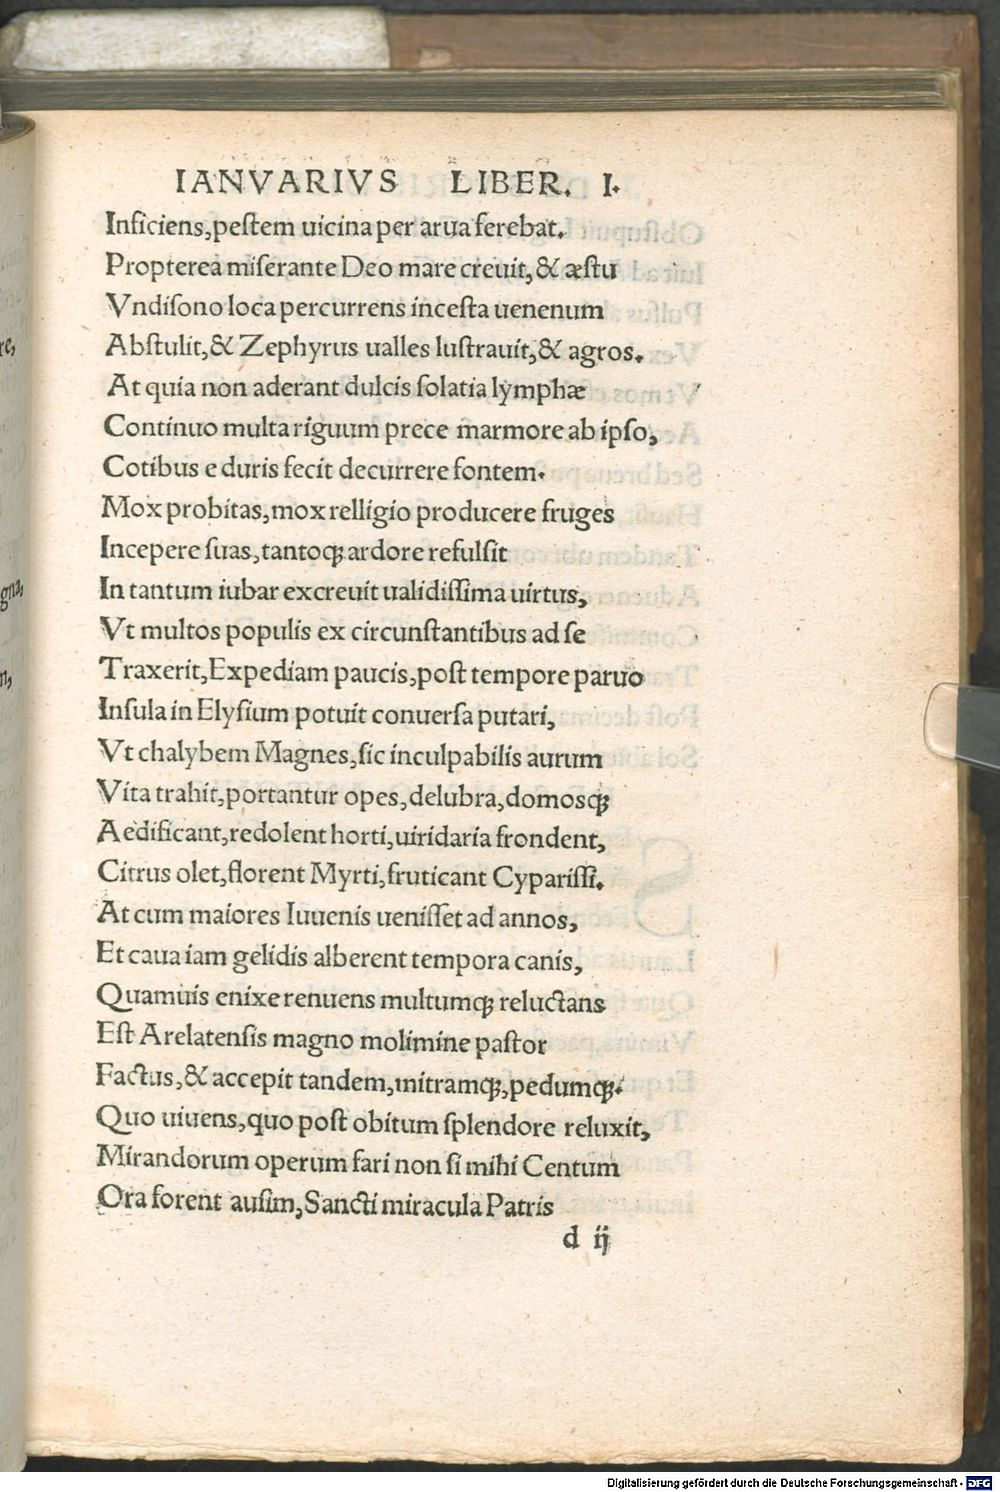 IANVARIVS LIBER. I.
Inficiens,pestem uicina per arua ferebat.
Propterea miserante Deo mare creuit,& æstu
Vndisono loca percurrens incesta uenenum
Abstulit,& Zephyrus ualles lustrauit,& agros.
At quia non aderant dulcis solatia lymphæ
Continuo multa riguum prece marmore ab ipso,
Cotibus e duris fecit decurrere fontem.
Mox probitas,mox relligio producere fruges
Incepere suas,tantoqꝫ ardore refulsit
In tantum iubar excreuit ualidissima uirtus,
Vt multos populis ex circunstantibus ad se
Traxerit,Expediam paucis,post tempore paruo
Insula in Elysium potuit conuersa putari,
Vt chalybem Magnes,sic inculpabilis aurum
Vita trahit,portantur opes,delubra,domosqꝫ
Aedificant,redolent horti,uiridaria frondent,
Citrus olet,florent Myrti,fruticant Cyparissi.
At cum maiores Iuuenis uenisset ad annos,
Et caua iam gelidis alberent tempora canis,
Quamuis enixe renuens multumqꝫ reluctans
Est Arelatensis magno molimine pastor
Factus,& accepit tandem,mitramqꝫ,pedumqꝫ.
Quo uiuens,quo post obitum splendore reluxit,
Mirandorum operum fari non si mihi Centum
Ora forent ausim,Sancti miracula Patris
d ij
re,
gna,
n,
Digitalisierung gefördert durch die Deutsche Forschungsgemeinschaft - DFG